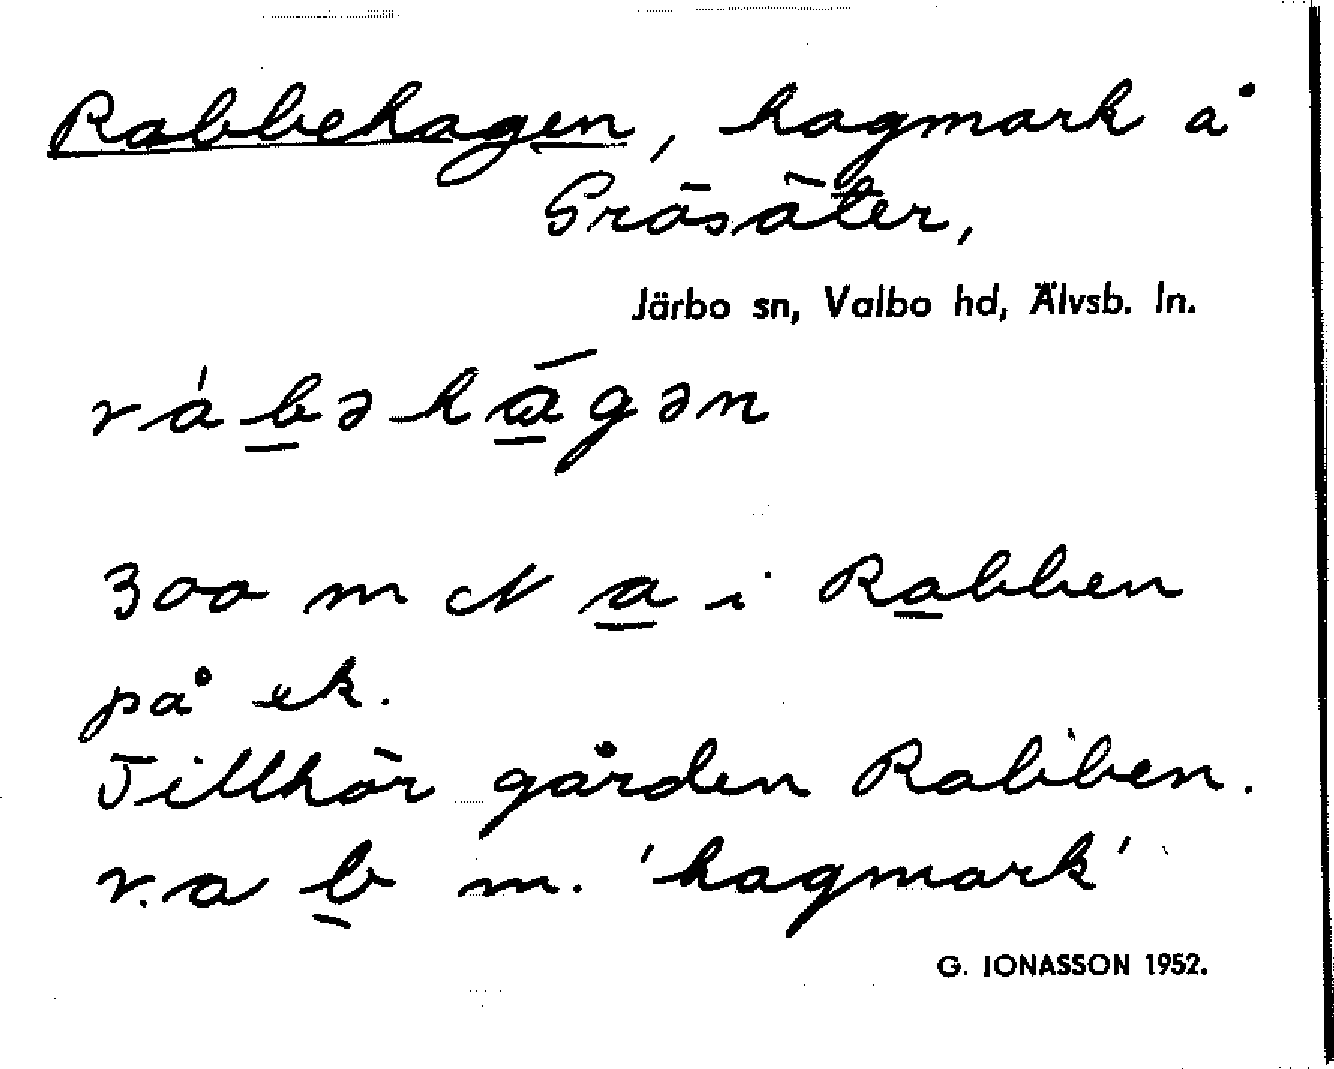 Rabbehagen, hagmark å
Gräsäter,
Järbo sn, Valbo hd, Älvsb. ln.
rábəhāgən
300 m N a i Rabben
på ek.
Tillhör gården Rabben.
rab m. 'hagmark'
G. IONASSON 1952.